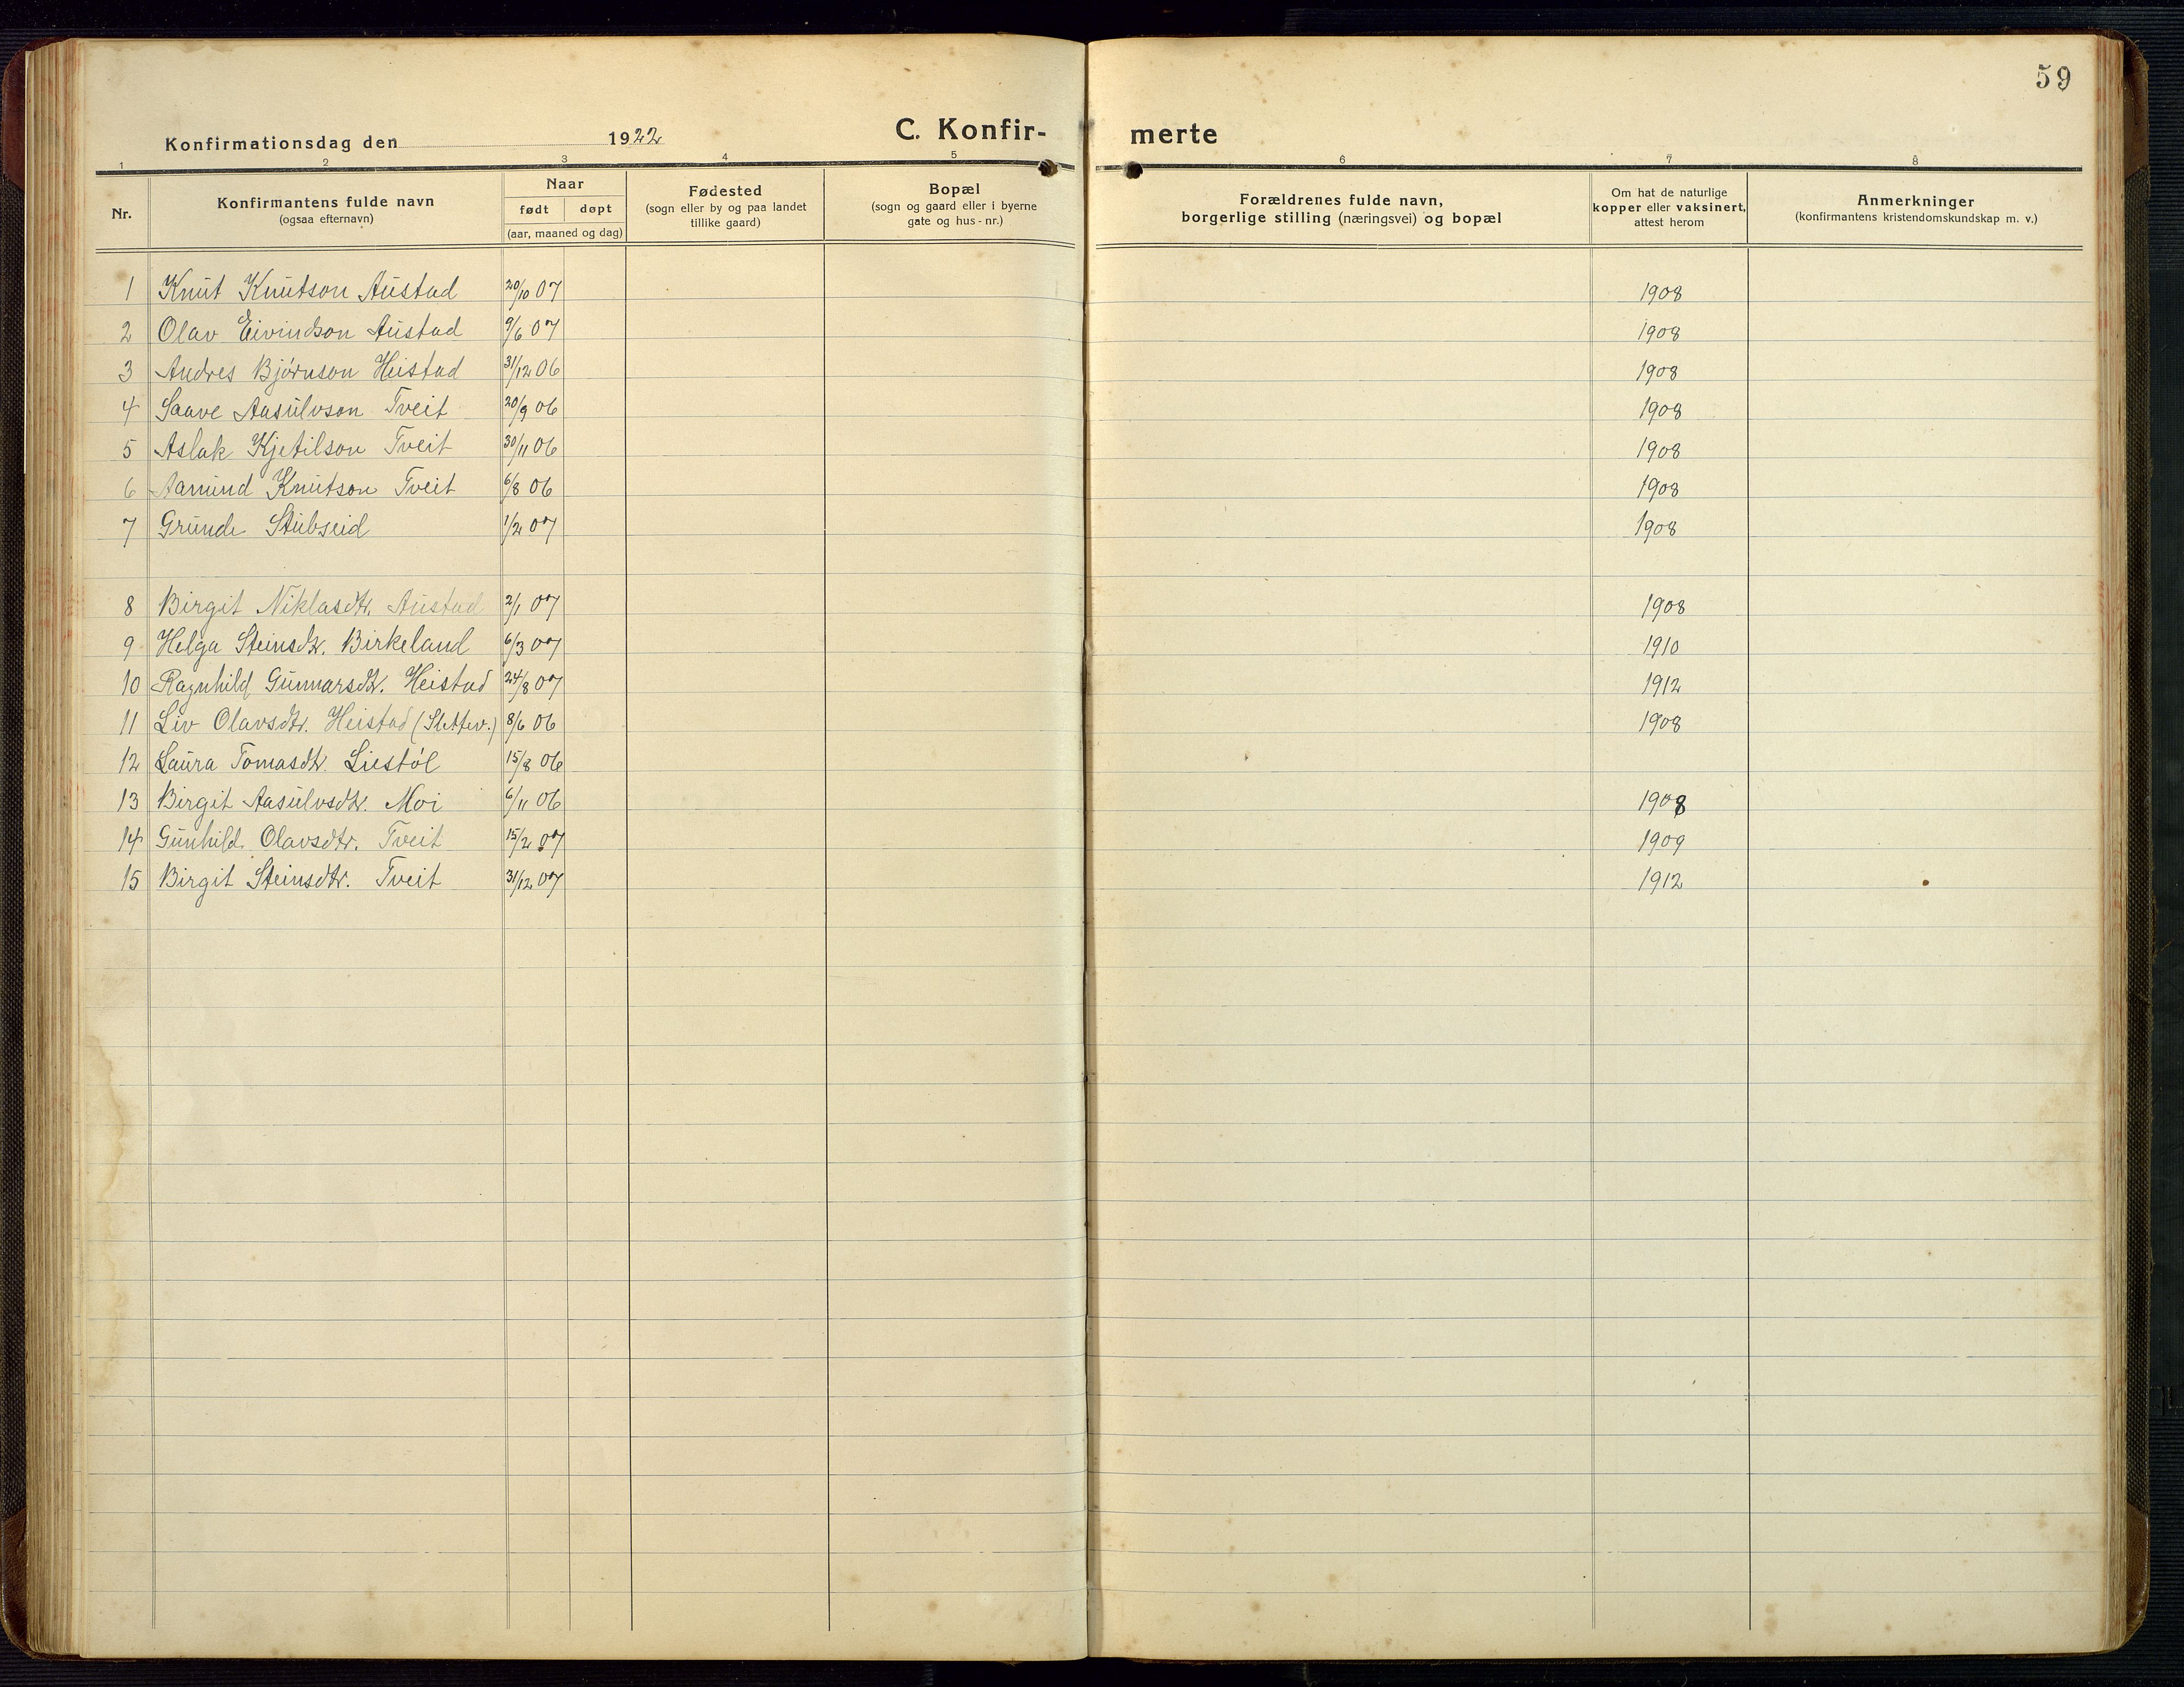 59
Konfirmationsdag den 1922 C. Konfir- merte
1 2 3 4 5 6 7 8
Nr.
Konfirmantens fulde navn
(ogsaa efternavn)
Naar
født døpt
(aar, maaned og dag)
Fødested
(sogn eller by og paa landet
tillike gaard)
Bopæl
(sogn og gaard eller i byerne
gate og hus - nr.)
Forældrenes fulde navn,
borgerlige stilling (næringsvei) og bopæl
Om hat de naturlige
kopper eller vaksinert,
attest herom
Anmerkninger
(konfirmantens kristendomskundskap m. v.)
1 Knut Knutson Austad 20/10 07 1908
2 Olav Eivindson Austad 9/6 07 1908
3 Andres Bjørnson Heistad 31/12 06 1908
4 Saave Aasulvson Tveit 20/9 06 1908
5 Aslak Kjetilson Tveit 30/11 06 1908
6 Aamund Knutson Tveit 6/8 06 1908
7 Grunde Stubseid 1/2 07 1908
8 Birgit Niklasdtr. Austad 2/1 07 1908
9 Helga Steinsdtr. Birkeland 6/3 07 1910
10 Ragnhild Gunnarsdtr. Heistad 24/8 07 1912
11 Liv Olavsdtr. Heistad (Slettev.) 8/6 06 1908
12 Laura Tomasdtr. Liestøl 15/8 06
13 Birgit Aasulvsdtr. Moi 6/11 06 1908
14 Gunhild Olavsdtr. Tveit 15/2 07 1909
15 Birgit Steinsdtr. Tveit 31/12 07 1912